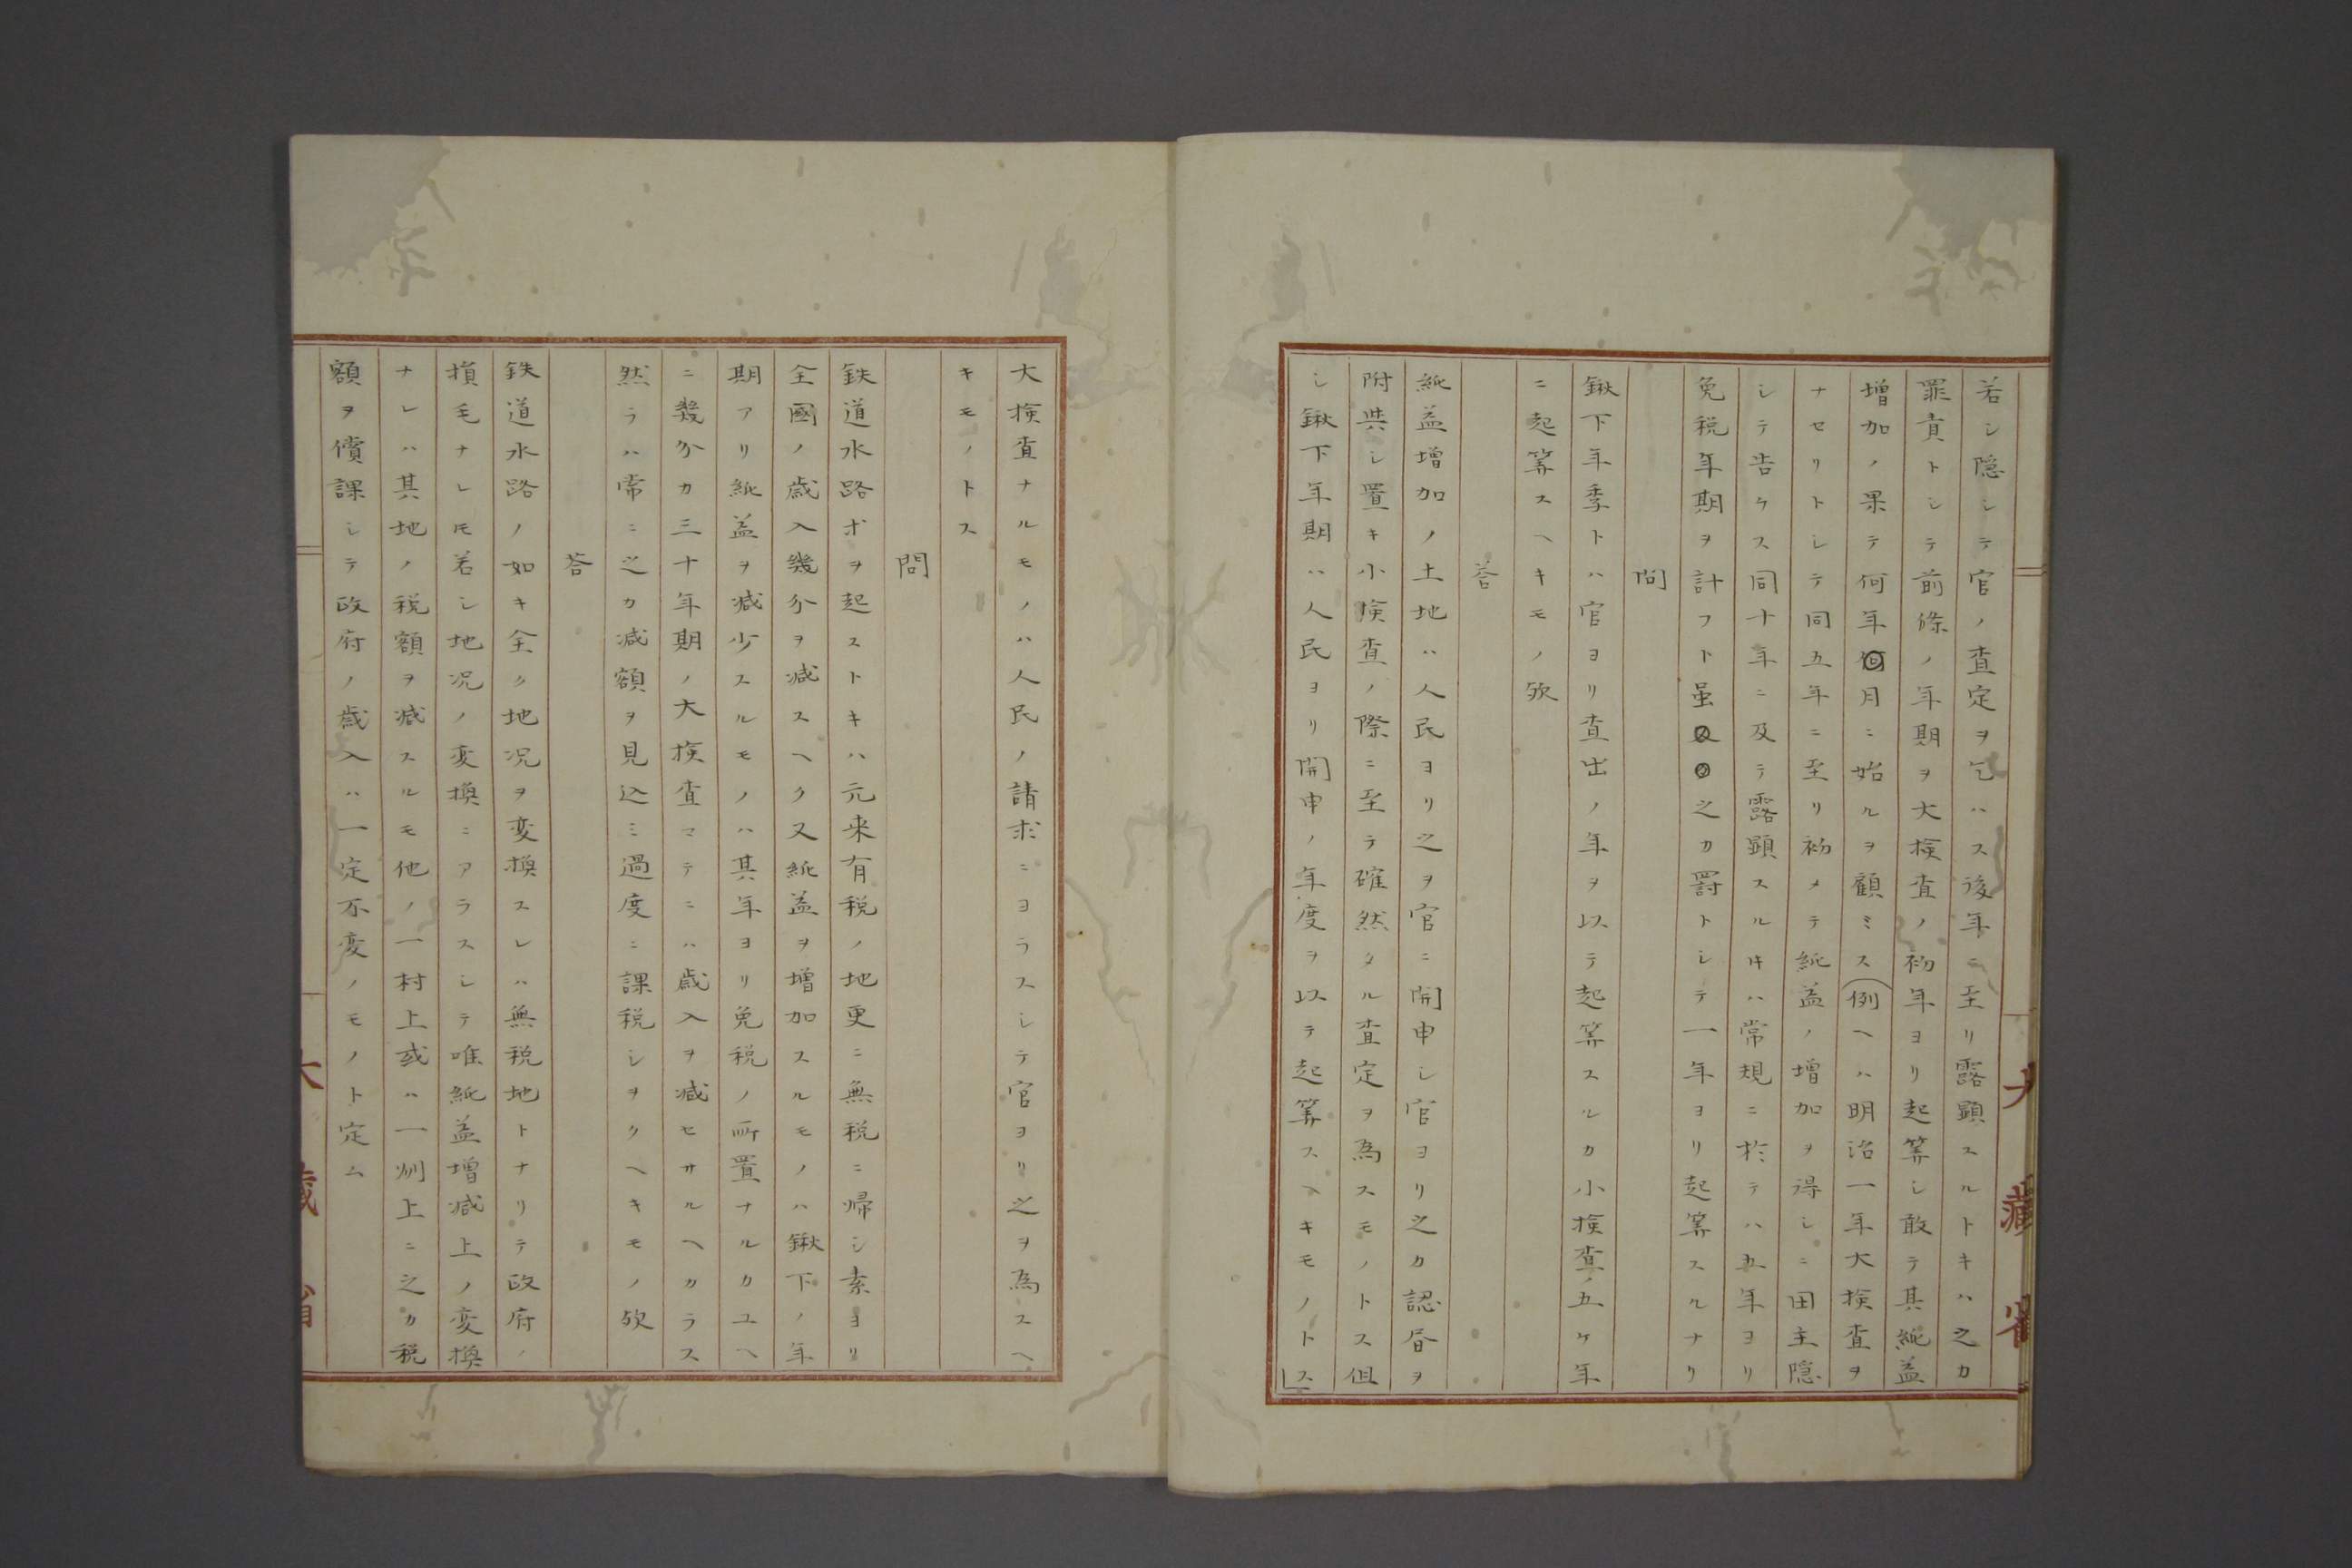 若シ隠シテ官ノ査定ヲ乞ハス後年ニ至リ露顕スルトキハ之カ
罪責トシテ前條ノ年期ヲ大検査ノ初年ヨリ起算シ敢テ其純益
増加ノ果テ何年何月ニ始ルヲ顧ミス(例ヘハ明治一年大検査ヲ
ナセリトシテ同五年ニ至リ初メテ純益ノ増加ヲ得シニ田主隠
シテ告ケス同十年ニ及テ露顕スル𪜈ハ常規ニ於テハ五年ヨリ
免税年期ヲ計フト虽之カ罸トシテ一年ヨリ起算スルナリ
問
鍬下年季トハ官ヨリ査出ノ年ヲ以テ起算スルカ小検査ノ五ケ年
ニ起算スヘキモノ欤
荅
純益増加ノ土地ハ人民ヨリ之ヲ官ニ開申シ官ヨリ之カ認昏ヲ
附與シ置キ小検査ノ際ニ至テ確然タル査定ヲ為スモノトス但
シ鍬下年期ハ人民ヨリ開申ノ年度ヲ以テ起算スヘキモノトス
大藏省
大検査ナルモノハ人民ノ請求ニヨラスシテ官ヨリ之ヲ為スヘ
キモノトス
問
鉄道水路ホヲ起ストキハ元来有税ノ地更ニ無税ニ帰シ素ヨリ
全國ノ歳入幾分ヲ减スヘク又純益ヲ増加スルモノハ鍬下ノ年
期アリ純益ヲ减少スルモノハ其年ヨリ免税ノ所置ナルカユヘ
ニ幾分カ三十年期ノ大検査マテニハ歳入ヲ减セサルヘカラス
然ラハ常ニ之カ减額ヲ見込ミ過度ニ課税シヲクヘキモノ欤
荅
鉄道水路ノ如キ全ク地况ヲ変換スレハ無税地トナリテ政府ノ
損毛ナレ𪜈若シ地况ノ変換ニアラスシテ唯純益増减上ノ変換
ナレハ其地ノ税額ヲ减スルモ他ノ一村上或ハ一州上ニ之カ税
額ヲ償課シテ政府ノ歳入ハ一定不変ノモノト定ム
大藏省